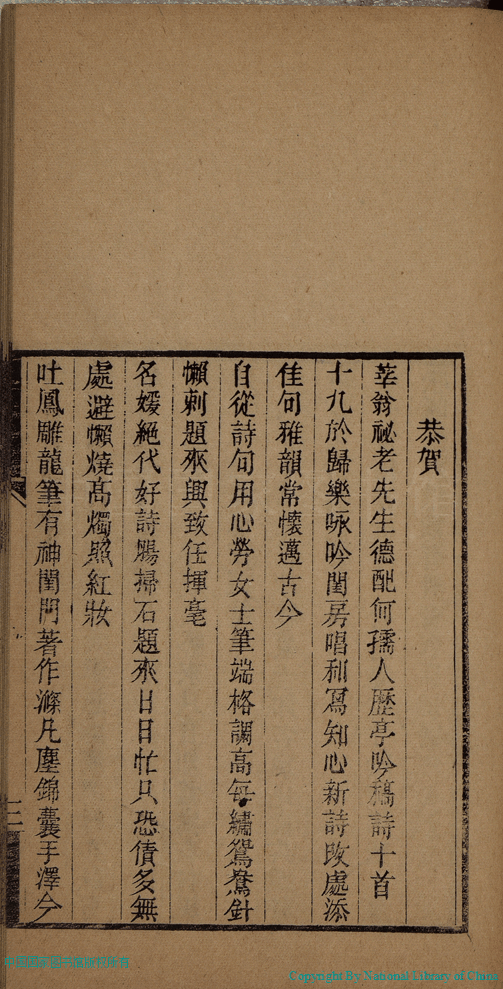 恭賀
莘翁祕老先生德配何孺人歷亭吟稿詩十首
十九於歸樂咏吟閨房唱和寫知心新詩改處添
佳句雅韻常懷邁古今
自從詩句用心勞女士筆端格調高每繡鴛鴦針
懶刺題來興致任揮毫
名媛絕代好詩腸掃石題來日日忙只恐債多無
處避懶燒高燭照紅妝
吐鳳雕龍筆有神閨門著作滌凡塵錦囊手澤今
Copyright By National Library of China